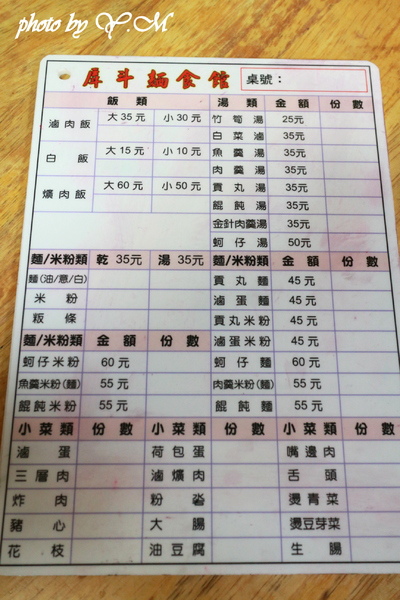 photo by Y.M
犀斗麵食館 桌號：
飯類 湯類 金額 份數
滷肉飯 大35元 小30元 竹筍湯 25元
白菜滷 35元
白飯 大15元 小10元 魚羹湯 35元
肉羹湯 35元
爌肉飯 大60元 小50元 貢丸湯 35元
餛飩湯 35元
金針肉羹湯 35元
蚵仔湯 50元
麵/米粉類 乾35元 湯35元 麵/米粉類 金額 份數
麵(油/意/白) 貢丸麵 45元
米粉 滷蛋麵 45元
粄條 貢丸米粉 45元
麵/米粉類 金額 份數 滷蛋米粉 45元
蚵仔米粉 60元 蚵仔麵 60元
魚羹米粉(麵) 55元 肉羹米粉(麵) 55元
餛飩米粉 55元 餛飩麵 55元
小菜類 份數 小菜類 份數 小菜類 份數
滷蛋 荷包蛋 嘴邊肉
三層肉 滷爌肉 舌頭
炸肉 粉肝 燙青菜
豬心 大腸 燙豆芽菜
花枝 油豆腐 生腸